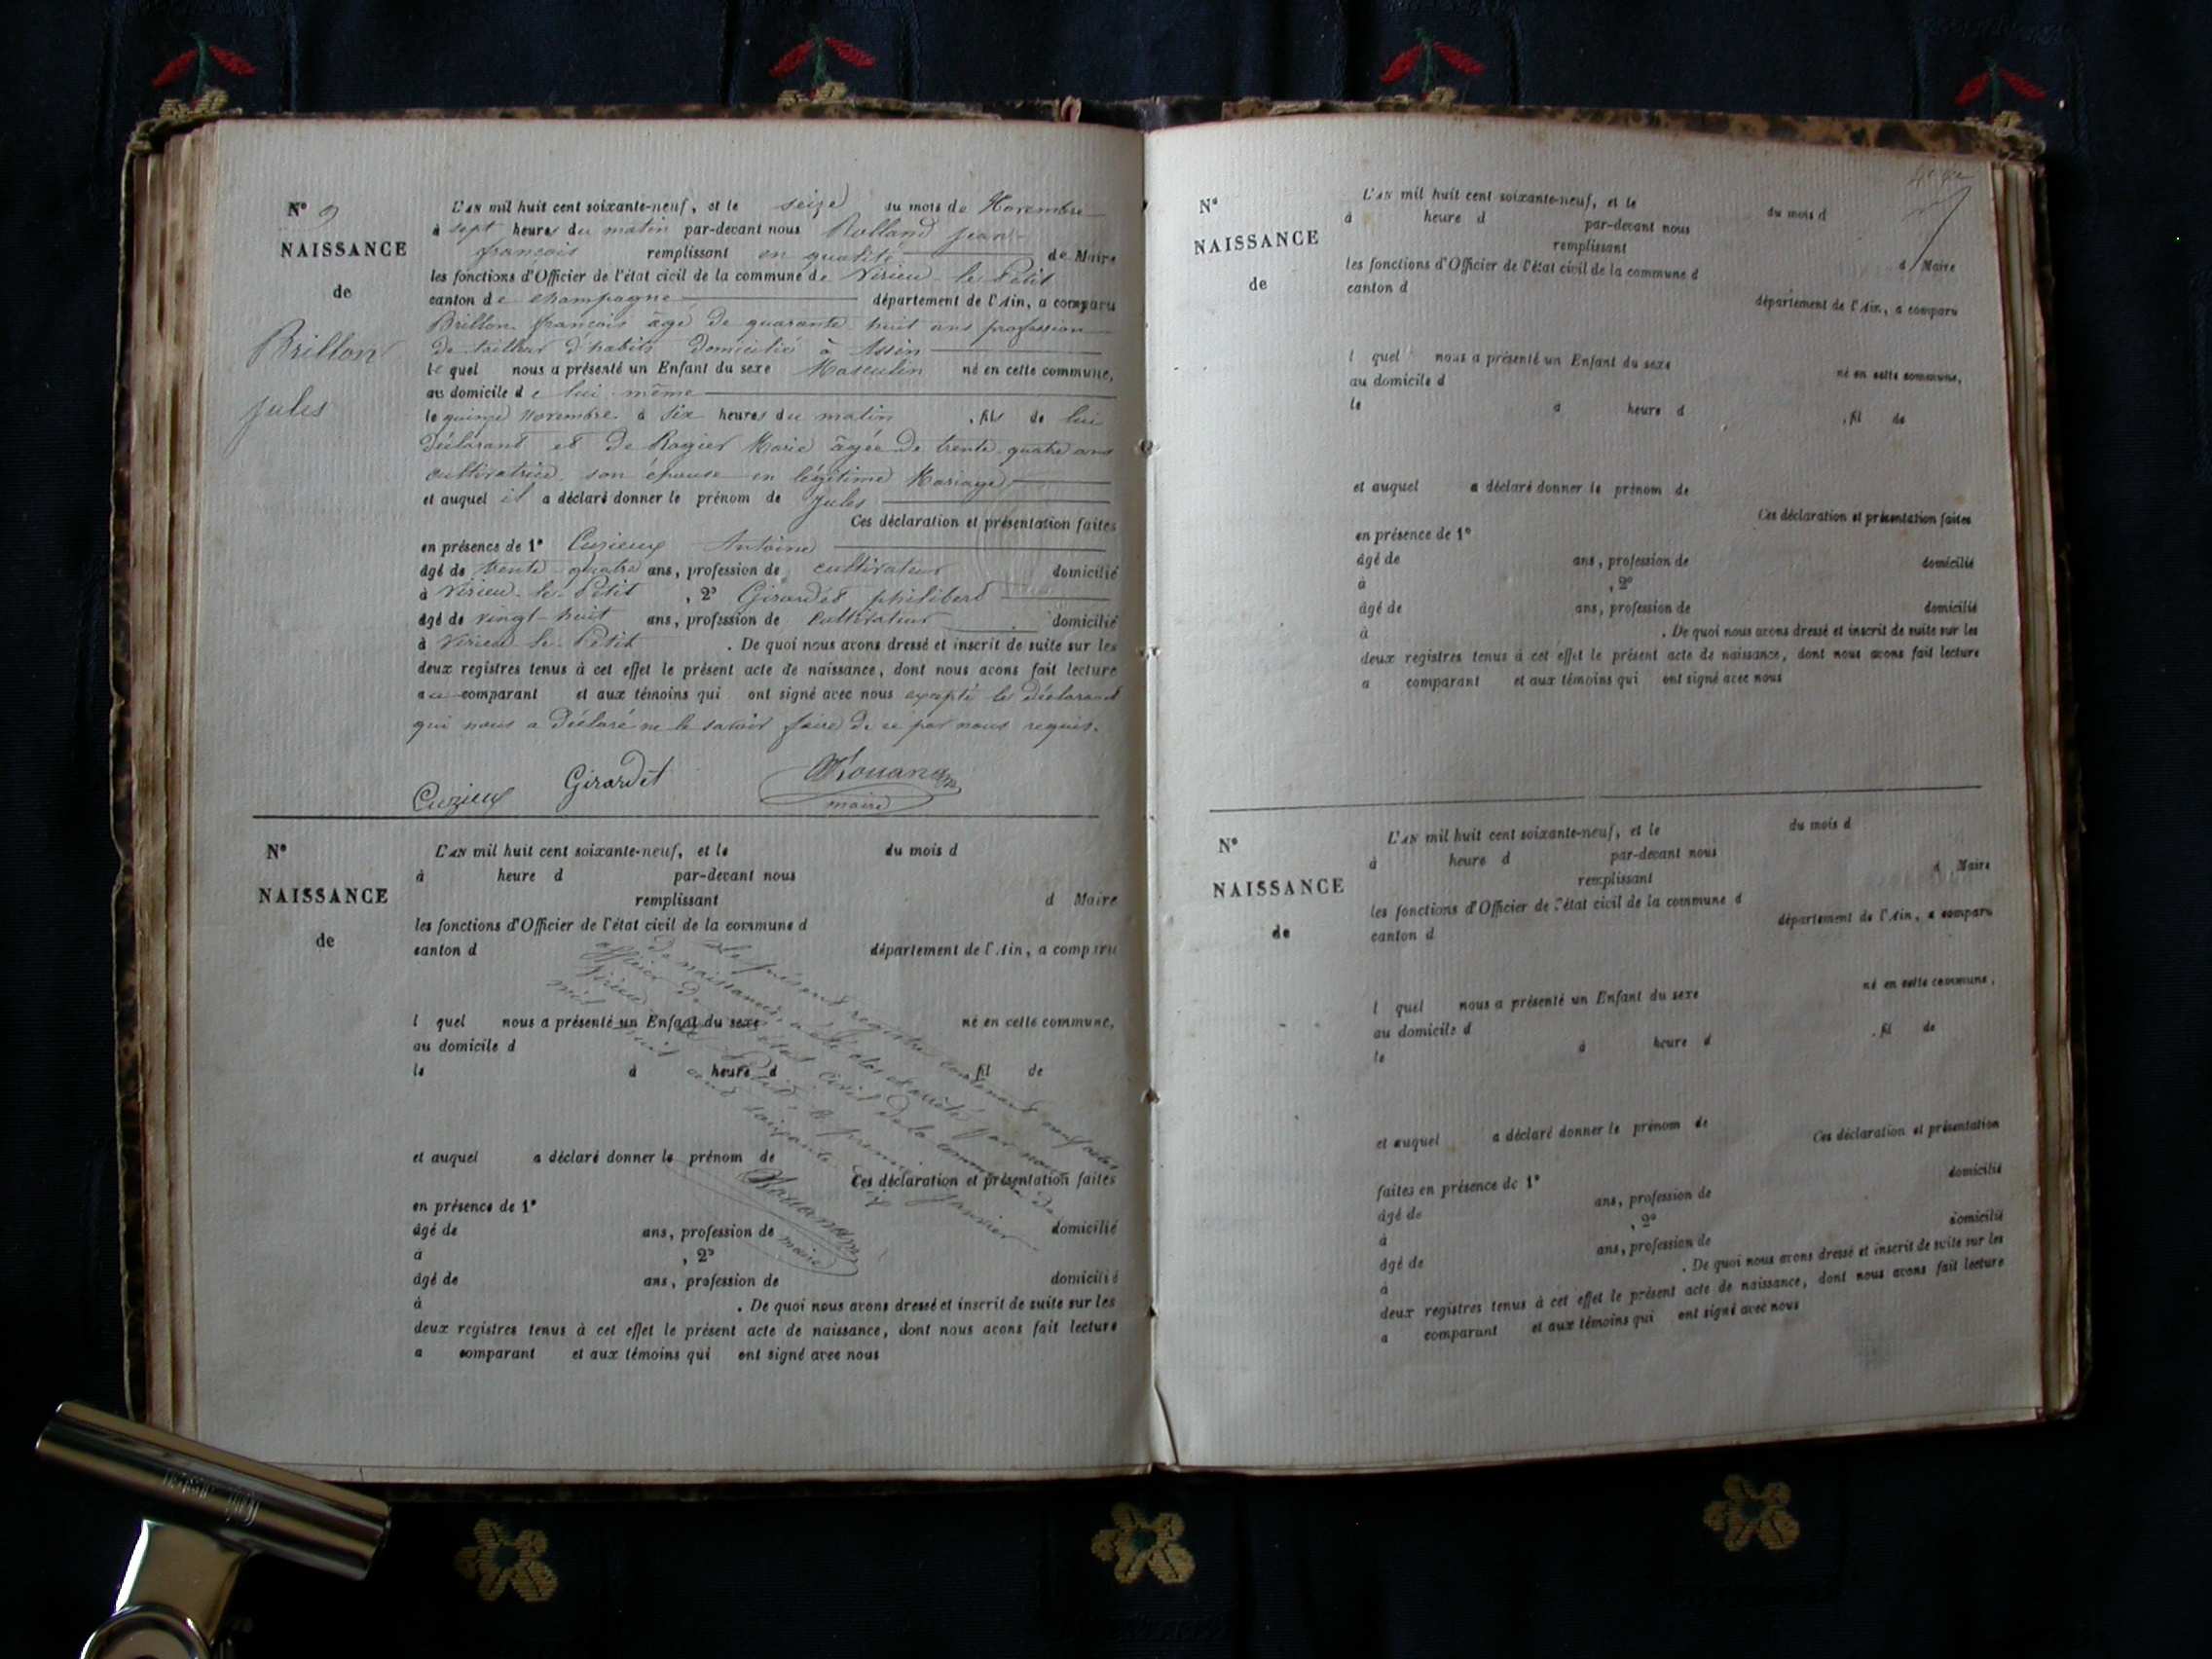 N° 9
NAISSANCE
de
Brillon
Jules
L'AN mil huit cent soixante-neuf, et le seize du mois de Novembre
à sept heures du matin par-devant nous Rolland Jean-
françois remplissant en qualité de Maire
les fonctions d'Officier de l'état civil de la commune de Virieu-le-Petit
canton de champagne département de l'Ain, a comparu
Brillon françois âgé de quarante-huit ans profession
de tailleur d'habits domicilié à Assin
lequel nous a présenté un Enfant du sexe Masculin né en cette commune,
au domicile de lui-même
le quinze Novembre à six heures du matin , fils de lui
déclarant et de Rogier Marie âgée de trente-quatre ans
cultivatrice son épouse en légitime Mariage
et auquel il a déclaré donner le prénom de Jules
Ces déclaration et présentation faites
en présence de 1° Cuzieux Antoine
âgé de trente-quatre ans, profession de cultivateur domicilié
à Virieu-le-Petit , 2° Girardet philibert
âgé de vingt-huit ans, profession de cultivateur domicilié
à Virieu-le-Petit . De quoi nous avons dressé et inscrit de suite sur les
deux registres tenus à cet effet le présent acte de naissance, dont nous avons fait lecture
au comparant et aux témoins qui ont signé avec nous excepté le déclarant
qui nous a déclaré ne le savoir faire de ce par nous requis.
Cuzieux Girardet
maire
N°
NAISSANCE
de
L'AN mil huit cent soixante-neuf, et le du mois d
à heure d par-devant nous
remplissant d Maire
les fonctions d'Officier de l'état civil de la commune d
canton d département de l'Ain, a comparu
l quel nous a présenté un Enfant du sexe né en cette commune,
au domicile d
le à heure d , fil de
et auquel a déclaré donner le prénom de
Ces déclaration et présentation faites
en présence de 1°
âgé de ans, profession de domicilié
à , 2°
âgé de ans, profession de domicilié
à . De quoi nous avons dressé et inscrit de suite sur les
deux registres tenus à cet effet le présent acte de naissance, dont nous avons fait lecture
a comparant et aux témoins qui ont signé avec nous
Le présent registre contenant neuf actes
de naissance, a été clos et arrêté par nous
officier de l'état civil de la commune de
Virieu le Petit le premier Janvier
mil huit cent soixante-dix
maire
N°
NAISSANCE
de
L'AN mil huit cent soixante-neuf, et le du mois d
à heure d par-devant nous
remplissant d Maire
les fonctions d'Officier de l'état civil de la commune d
canton d département de l'Ain, a comparu
l quel nous a présenté un Enfant du sexe né en cette commune,
au domicile d
le à heure d , fil de
et auquel a déclaré donner le prénom de
Ces déclaration et présentation faites
en présence de 1°
âgé de ans, profession de domicilié
à , 2°
âgé de ans, profession de domicilié
à . De quoi nous avons dressé et inscrit de suite sur les
deux registres tenus à cet effet le présent acte de naissance, dont nous avons fait lecture
a comparant et aux témoins qui ont signé avec nous
N°
NAISSANCE
de
L'AN mil huit cent soixante-neuf, et le du mois d
à heure d par-devant nous
remplissant d Maire
les fonctions d'Officier de l'état civil de la commune d
canton d département de l'Ain, a comparu
l quel nous a présenté un Enfant du sexe né en cette commune,
au domicile d
le à heure d , fil de
et auquel a déclaré donner le prénom de
Ces déclaration et présentation
faites en présence de 1° domicilié
âgé de ans, profession de
à , 2° domicilié
âgé de ans, profession de
à . De quoi nous avons dressé et inscrit de suite sur les
deux registres tenus à cet effet le présent acte de naissance, dont nous avons fait lecture
a comparant et aux témoins qui ont signé avec nous